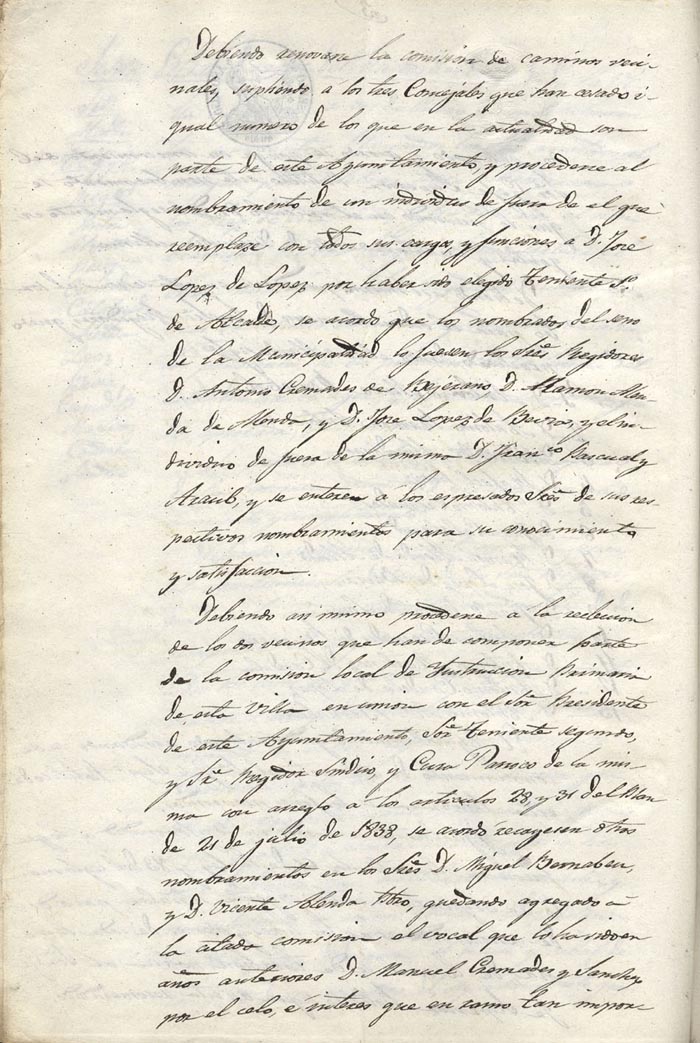 Debiendo renovarse la comisión de caminos veci-
nales, supliendo á los tres Concejales que han cesado i-
gual numero de los que en la actualidad son
parte de este Ayuntamiento, y procederse al
nombramiento de un individuo de fuera de el que
reemplaze con todos sus cargos, y funciones a D. Jose
Lopez de Lopez por haber sido elegido Teniente 1º
de Alcalde, se acordo que los nombrados del seno
de la Municipalidad lo fuesen los Sres Regidores
D. Antonio Cremades de Bejerano, D. Ramon Alen-
da de Alenda, y D. Jose Lopez de y el in-
dividuo de fuera de la misma D. Franco Pascual y
Aracil, y se entere á los espresados Sres de sus res-
pectivos nombramientos para su conocimiento
y satisfaccion.
Debiendo asi mismo procederse a la
de los dos vecinos que han de componer parte
de la comision local de Ynstruccion Primaria
de esta Villa en union con el Sor Presidente
de este Ayuntamiento, Sor Teniente segundo,
y Sr Regidor Sindico, y Cura Parroco de la mis-
ma con arreglo á los articulos 28, y 31 del Plan
de 21 de julio de 1838, se acordó recayesen
nombramientos en los Sres D. Miguel Bernabeu,
y D. Vicente Alenda quedando agregado a
la citada comision el vocal que lo ha sido en
años anteriores D. Manuel Cremades y Sanchez
por el celo, é interes que en ramo tan impor-